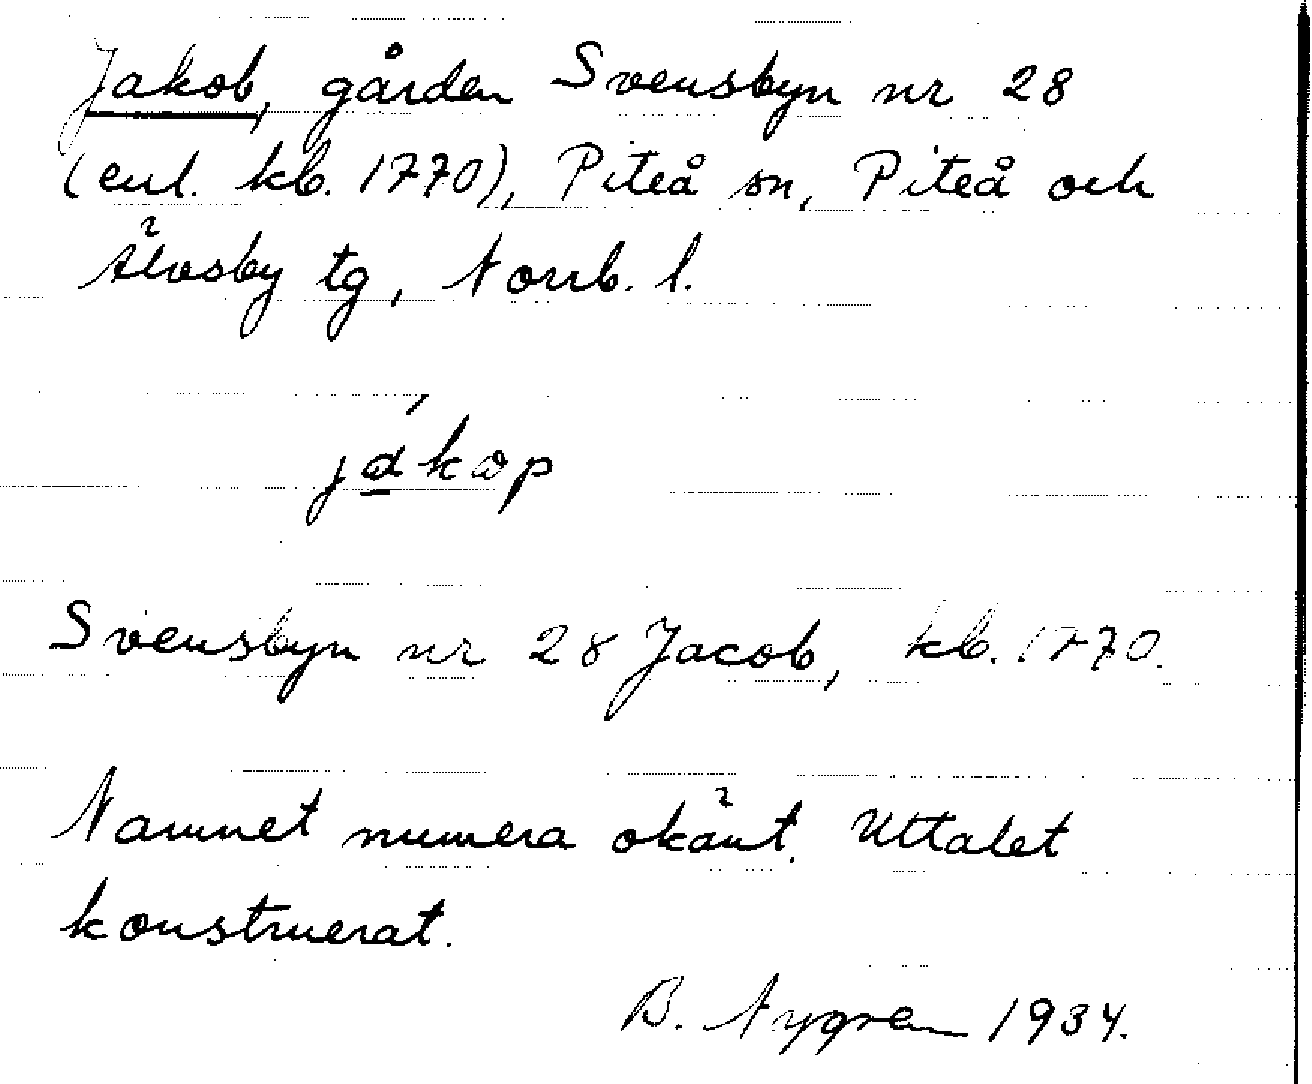 Jakob, gården Svensbyn nr 28
(enl. kb. 1770), Piteå sn, Piteå och
Älvsby tg, Norrb. l.
já̱kɷp
Svensbyn nr 28 Jacob, kb. 1770.
Namnet numera okänt. Uttalet
konstruerat.
B. Nygren 1934.